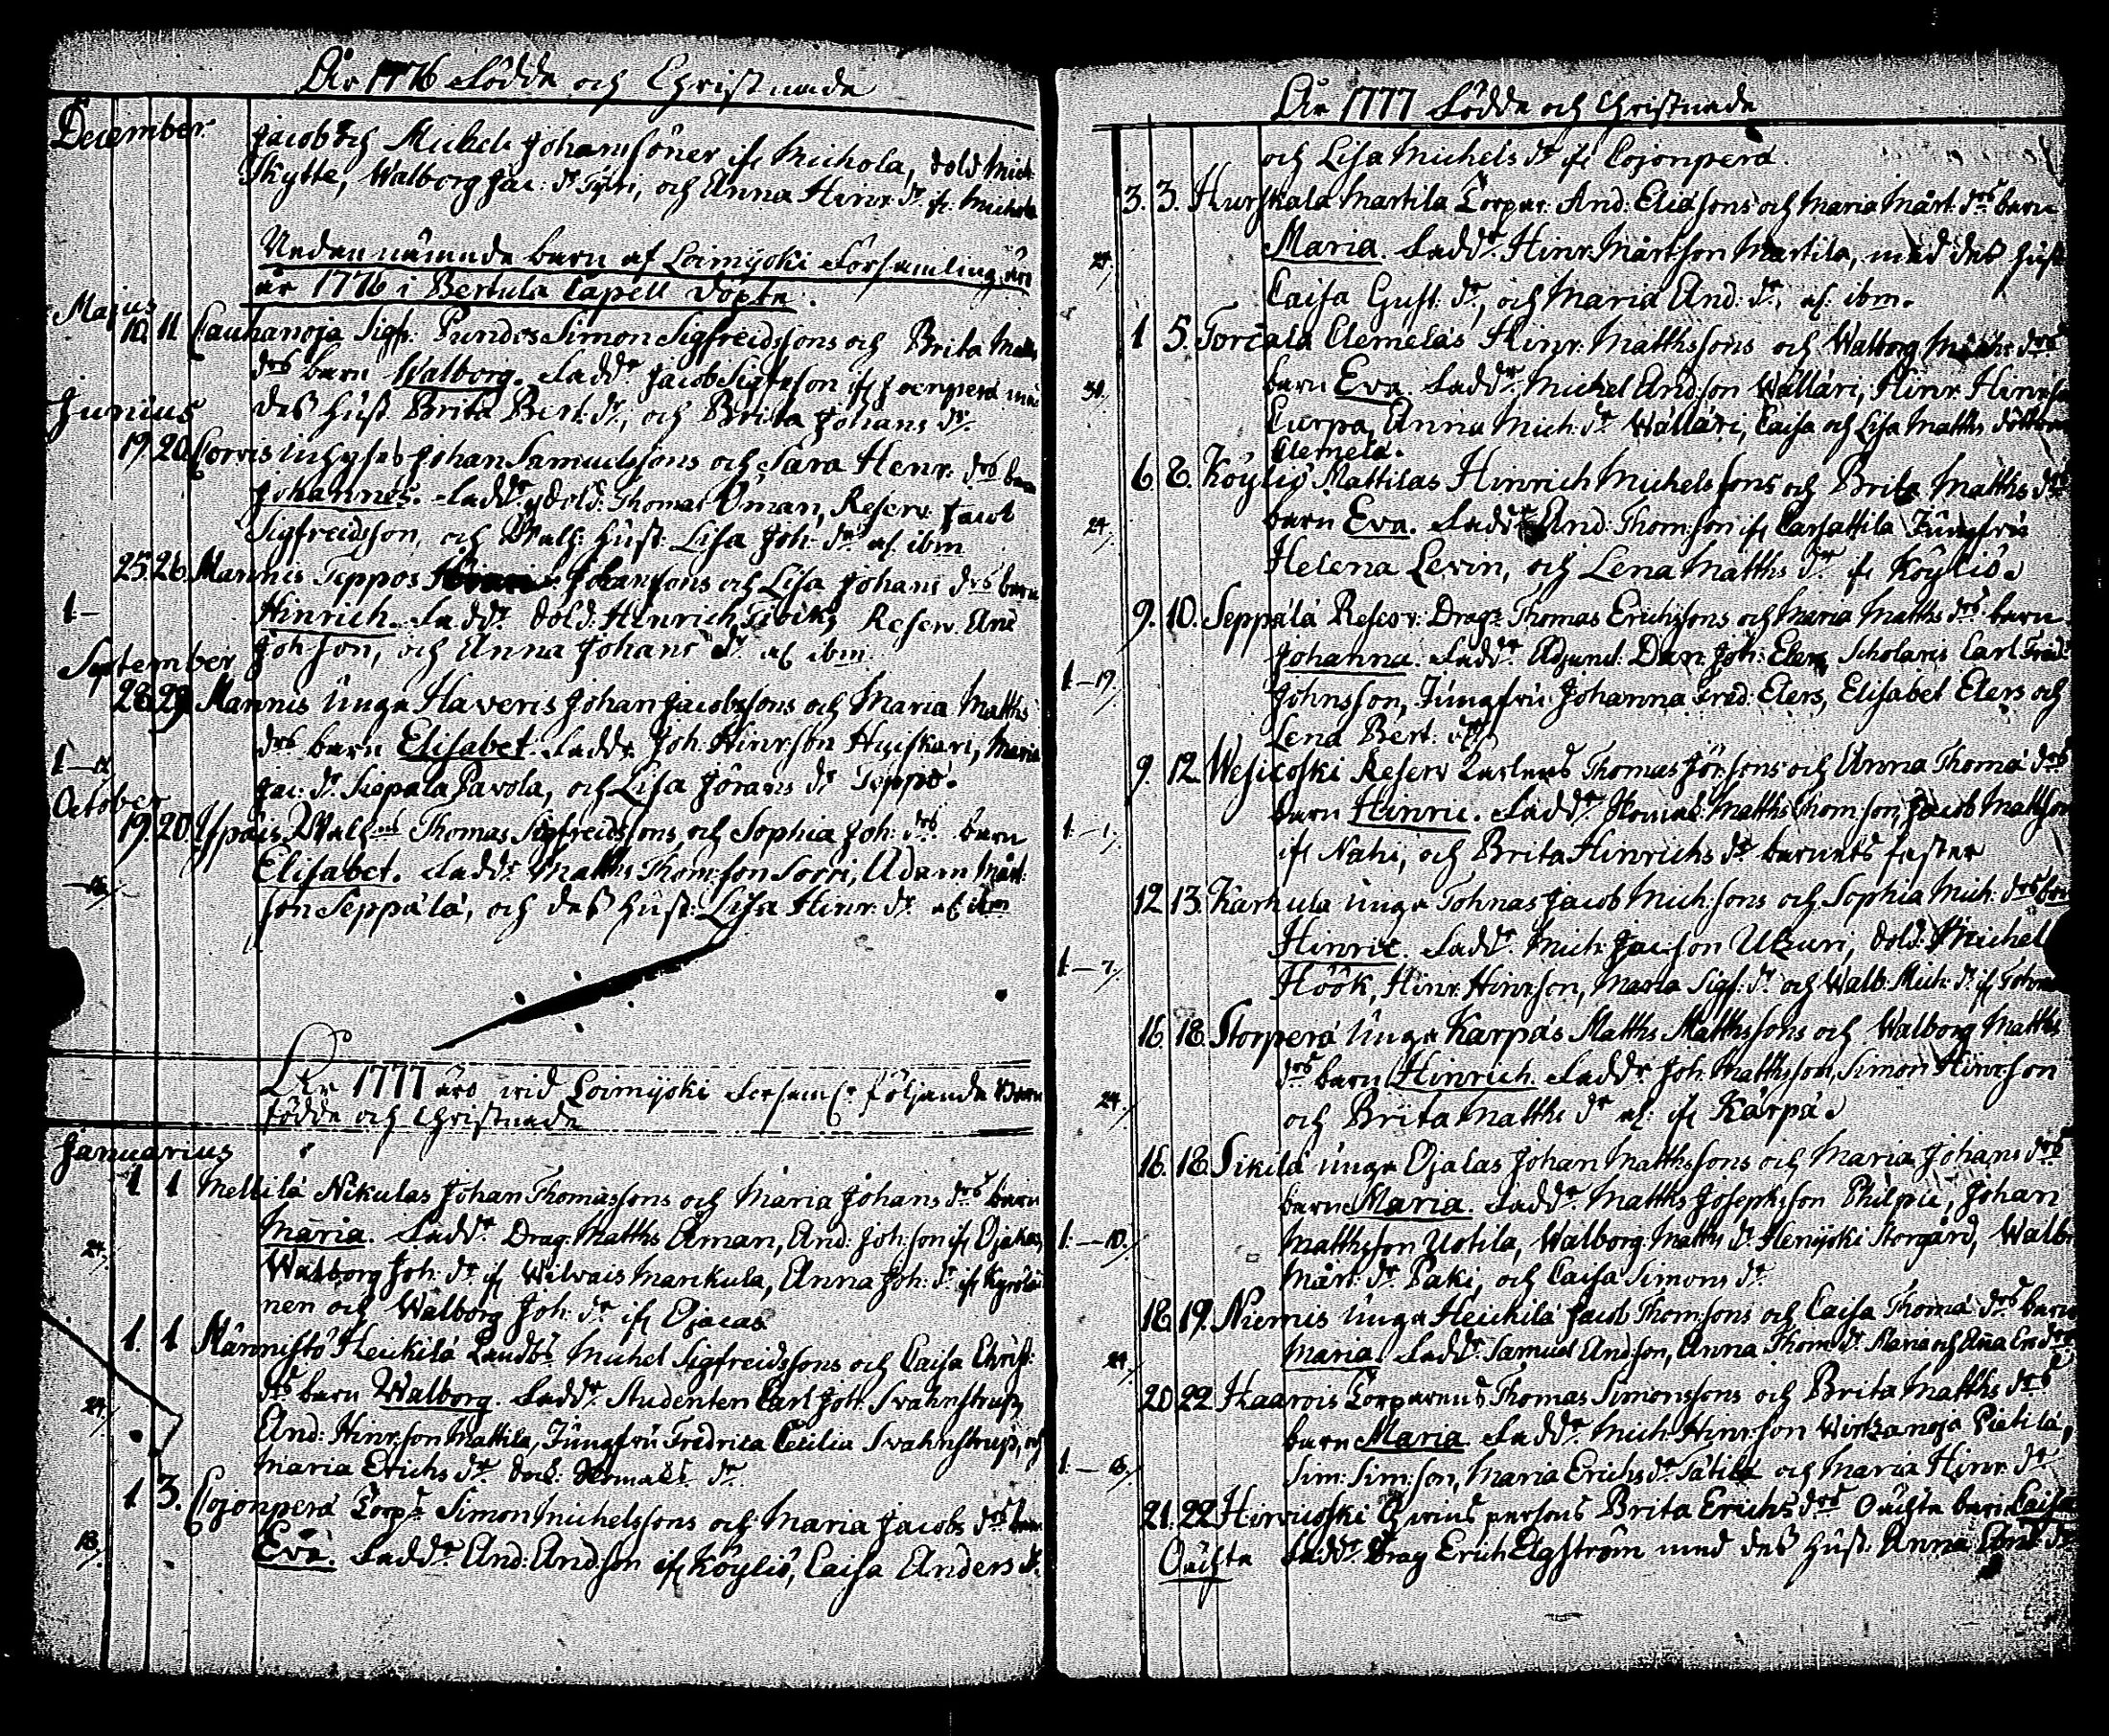 År 1776 Födde och Christnade
December
Jacob och Michel Johanssöner ifr. Michola, Sold. Mich:
Skytte, Walborg Jac: dr Tyri, och Anna Hinr: dr ifr. Michola
Nedannämnde barn af Loimijoki Församling äro
år 1776 i Bertula Capell döpte.
Majus
10. 11 Cauhanoja Sigfr. Simon Sigfreidssons och Brita Matts
drs barn Walborg. Fadd:r Jacob Sigfr.son ifr Joenperä med
dess hust. Brita Bert. dr, och Brita Johans dr.
Junius
19. 20. Corvis Inhyses Johan Samuelssons och Sara Henr: drs barn
Johannes. Fadd:r Sold: Thomas Öman, Reserv. Jacob
Sigfreidsson, och hust. Lisa Joh: dr af ibm
25. 26. Mannis Teppos Johanssons och Lisa Johans drs barn
1.—
Hinrich. Fadd:r Sold. Hinrich Reserv. And
Joh:son, och Anna Johans dr af ibm.
September
28. 29. Mannis Unga Haveris Johan Jacobssons och Maria Matths
drs barn Elisabet. Fadd:r Joh. Hinr:son Huiskari, Maria
Jac: dr. Siepala Pavola, och Lisa Jörans dr Teppo.
October
19. 20. Ypäis Thomas Sigfreidssons och Sophia Joh: drs barn
Elisabet. Fadd:r Matths Thom:son Sorri, Adam Mårt:
son Seppälä, och dess hust. Lisa Hinr: dr af ibm
År 1777 äro vid Loimijoki Församl:g följande Barn
födde och Christnade
Januarius
1. 1 Mellilä Nikulas Johan Thomassons och Maria Johans drs barn
24/.
Maria. Fadd:r Drag: Matths Åman, And: Joh:son ifr Ojakas,
Walborg Joh: dr ifr Wilvais Marikula, Anna Joh: dr ifr
nen och Walborg Joh: dr ifr Ojacas
1. 1 Männistö Heickilä Landb: Michel Sigfreidssons och Caisa Christ:
24/.
drs barn Walborg. Fadd:r Studenten Carl Joh. Svahnström,
And: Hinr:son Mattila, Jungfru Fredrica Cecilia Svahnström, och
Maria Erichs dr
1. 3. Cojonperä Torp: Simon Michelssons och Maria Jacobs drs barn
18/.
Eva. Fadd:r And: And:son ifr Köyliö, Caisa Anders dr
År 1777 Födde och Christnade
och Lisa Michels dr ifr Cojonperä.
3. 3. Hurskala Martila Torpar: And: Eliæsons och Maria Mårt. drs barn
Maria. Fadd:r Hinr. Mårtson Martila, med dess hust
Caisa Gust: dr, och Maria And: dr, af ibm.
1 5. Torcala Clemeläs Hinr: Matthssons och Walborg drs
30/.
barn Eva. Fadd:r Michel And:son Wälläri, Hinr: Hinr:son
Curpa, Anna Mich: dr Wälläri, Caisa och Lisa Matths döttrar
Clemelä.
6 8. Köyliö Mattilas Hinrich Michelssons och Brita Matths drs
24/.
barn Eva. Fadd:r And: Thom:son ifr Carsattila Jungfru
Helena Levin, och Lena Matths dr ifr Köyliö.
9. 10. Seppälä Reserv: Drag: Thomas Erichssons och Maria Matths drs barn
1.—19/.
Johanna. Fadd:r Adjunct: Dan: Joh: Elers, Scholaris Carl Fred:
Johnsson, Jungfru Johanna Fred: Elers, Elisabet Elers och
Lena Bert: dr
9. 12. Wesicoski Reserv Thomas Jör:sons och Anna Thomæ drs
1.—1/.
barn Hinric. Fadd:r Matths Thom:son, Jacob Mattson
ifr Nahi, och Brita Hinrichs dr barnets faster
12. 13. Karhula Unga Tohnas Jacob Mich:sons och Sophia Mich: drs barn
1.—7/.
Hinric. Fadd:r Mich: Jac:son Uzuri, Sold: Michel
Höök, Hinr: Hinr:son, Maria Sigf: dr och Walb: Mich: dr ifr
16. 18. Storperä Unga Karpäs Matths Matthssons och Walborg Matths
24/.
drs barn Hinrich. Fadd:r Joh: Matthsson, Simon Hinr:son
och Brita Matths dr af ifr Kärpä.
16. 18. Sikilä Unga Ojalas Johan Matthssons och Maria Johans drs
1.—10/.
barn Maria. Fadd:r Matths Josephsson Philpu, Johan
Matthsson Uotila, Walborg Matths dr Storgård, Walb:
Mårt: dr Paki, och Caisa Simons dr
18. 19. Niemis Unga Heickilä Jacob Thom:sons och Caisa Thomæ drs barn
24/.
Maria. Fadd:r Samuel And:son, Anna Thom: dr Maria och Anna
20. 22. Haarois Torparens Thomas Simonssons och Brita Matths drs
barn Maria. Fadd:r Mich: Hinr:son Wirkanoja Pietilä,
Sim: Sim:son, Maria Erichs dr Tätilä och Maria Hinr: dr
21. 22. Hirvicoski Qvinnspersons Brita Erichs drs Oächta barn Caisa
Oächta
Fadd:r Drag Erich Elgström med dess hust. Anna